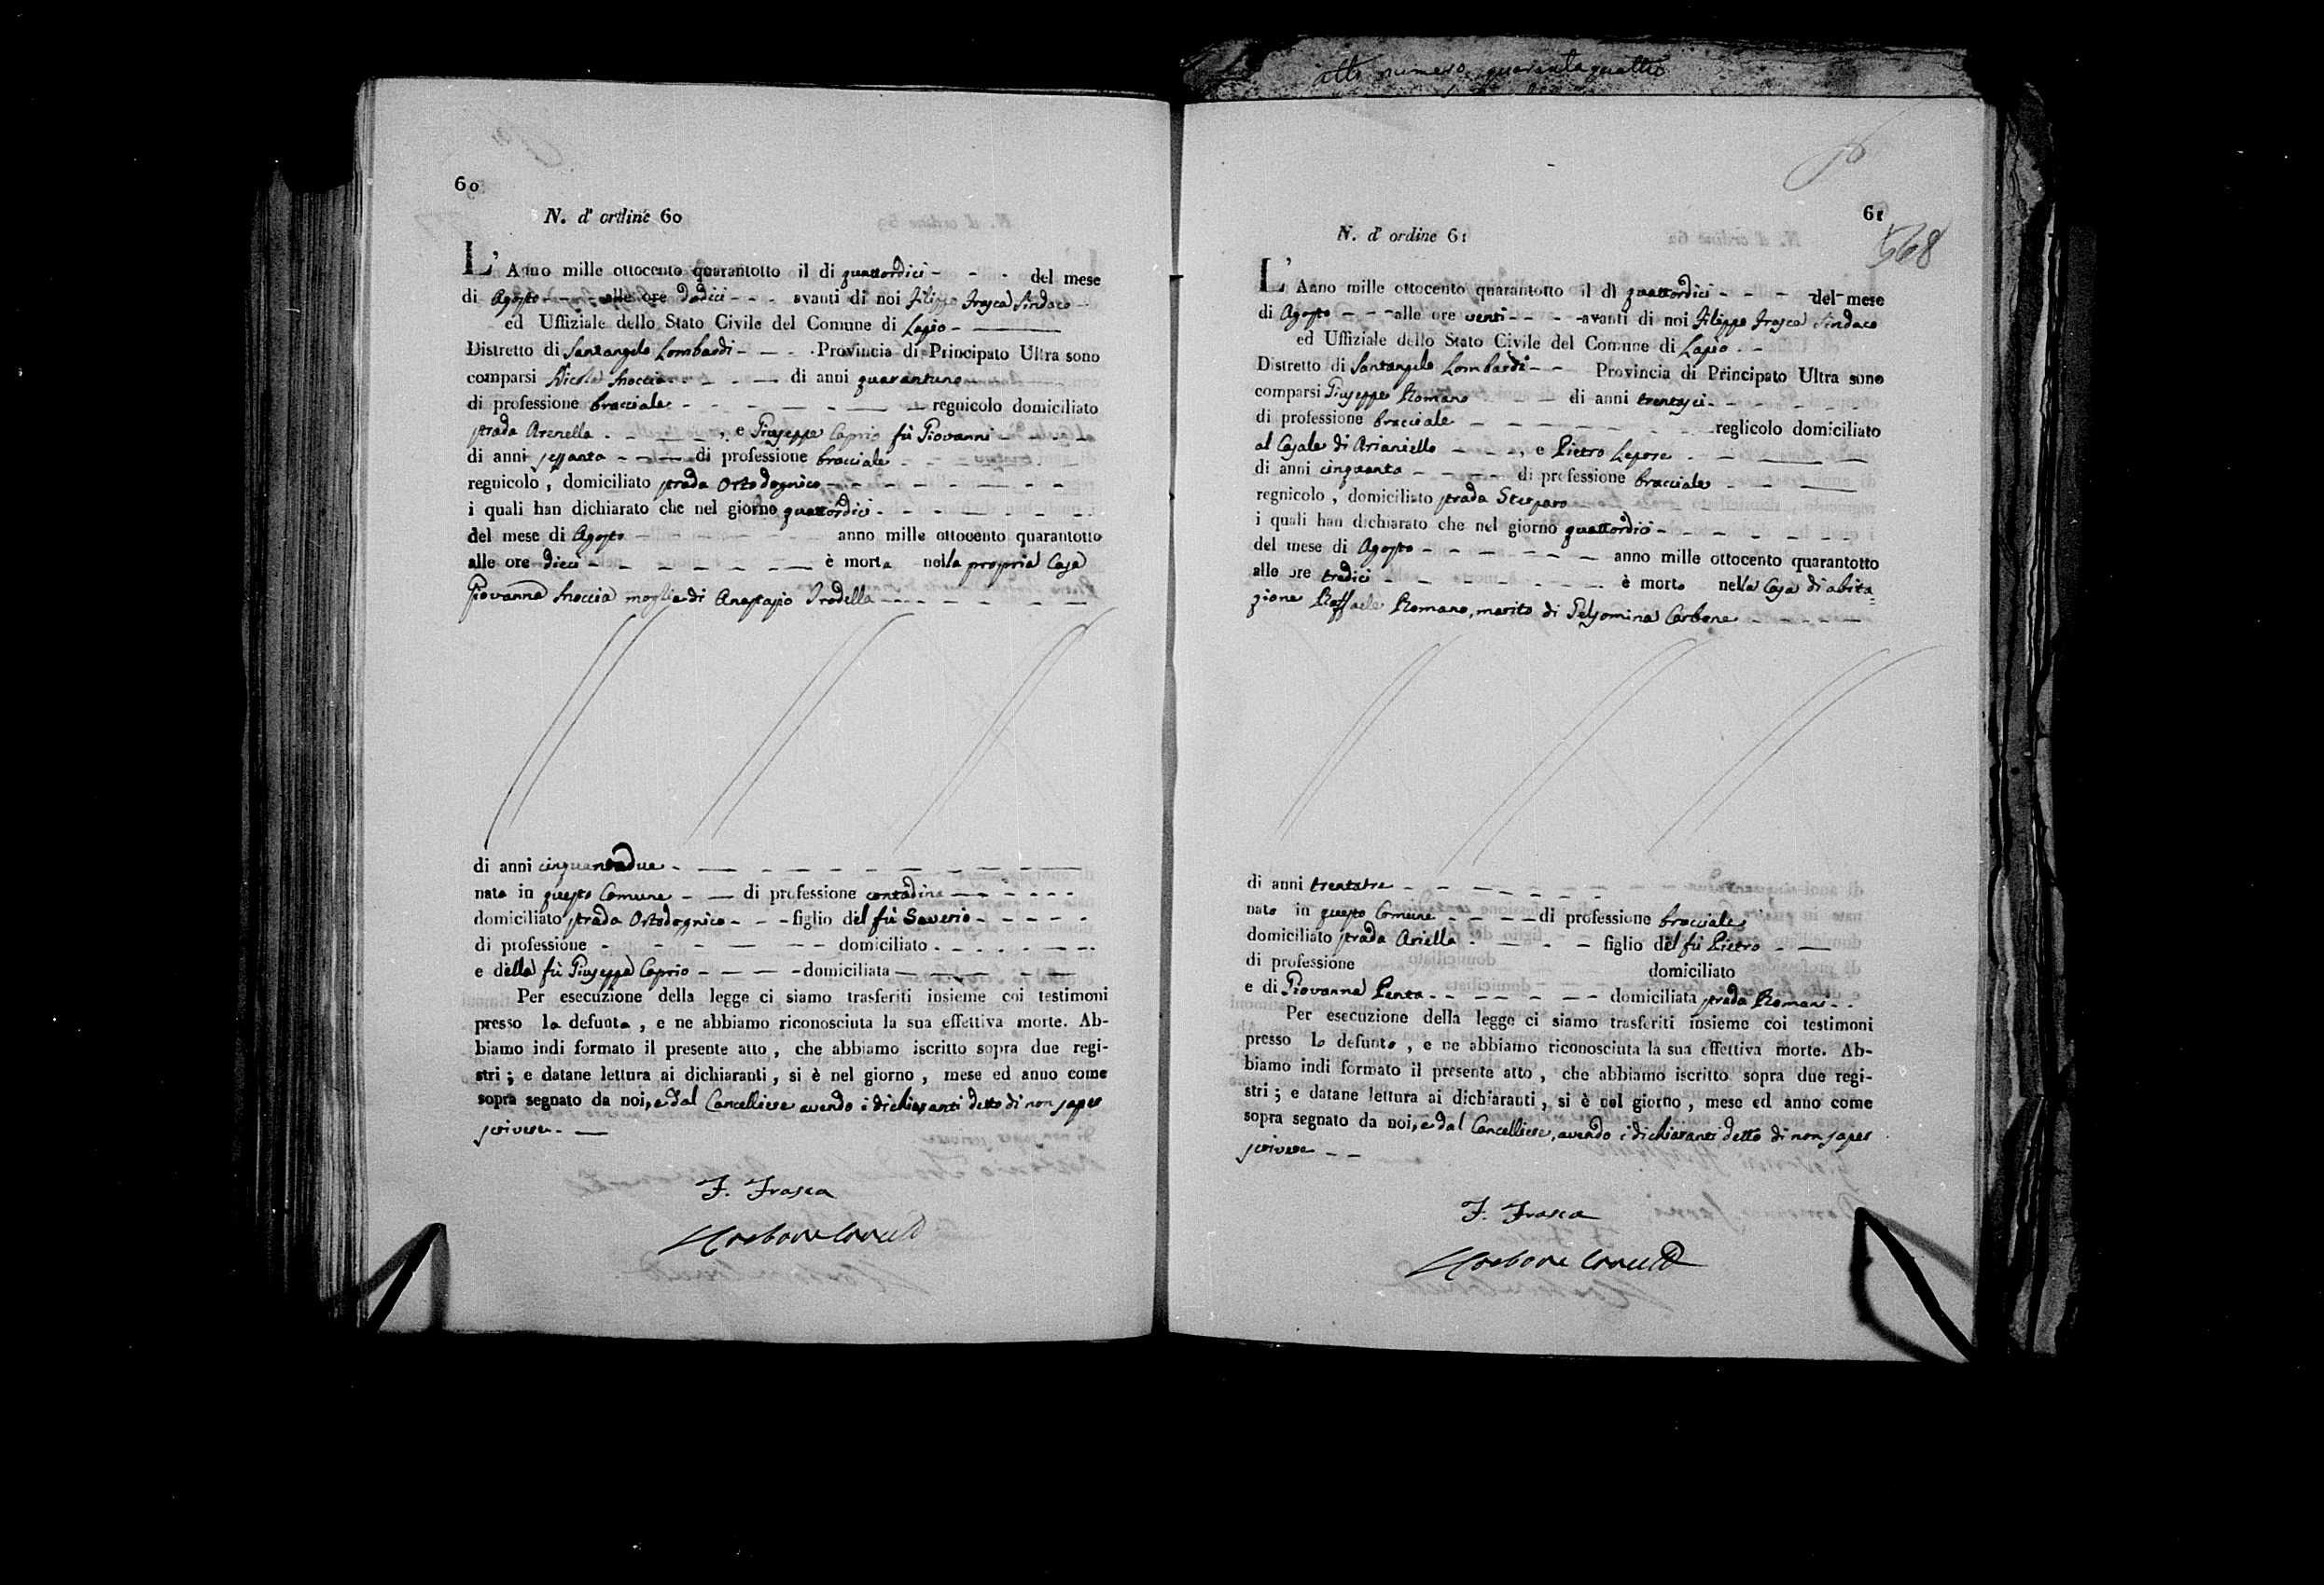 60
N. d' ordine 60
L' Anno mille ottocento quarantotto il di quattordici - - - del mese
di Agosto - - - alle ore dodici - - - avanti di noi Filippo Frasca Sindaco -
ed Uffiziale dello Stato Civile del Comune di Lapio -
Distretto di Santangelo Lombardi - - - Provincia di Principato Ultra sono
comparsi Nicola di anni quarantuno
di professione bracciale - - - regnicolo domiciliato
strada Arenella - - - , e Giuseppe Caprio fù Giovanni - - -
di anni sessanta - - - di professione bracciale - - -
regnicolo , domiciliato strada Ortodognico - - -
i quali han dichiarato che nel giorno quattordici - - -
del mese di Agosto - - - anno mille ottocento quarantotto
alle ore dieci - - - è morta nella propria Casa
Giovanna moglie di Anastasio Trodella - - -
di anni cinquantadue - - -
nata in questo Comune - - di professione contadina - - -
domiciliato strada Ortodognico - - - figlio del fù Saverio - - -
di professione - - - domiciliato - - -
e della fù Giuseppa Caprio - - - domiciliata - - -
Per esecuzione della legge ci siamo trasferiti insieme coi testimoni
presso la defunta , e ne abbiamo riconosciuta la sua effettiva morte. Ab-
biamo indi formato il presente atto , che abbiamo iscritto sopra due regi-
stri ; e datane lettura ai dichiaranti , si è nel giorno , mese ed anno come
sopra segnato da noi, e dal Cancelliere avendo i dichiaranti detto di non saper
scrivere - -
F. Frasca
atto numero quarantaquattro
61
568
N. d' ordine 61
L' Anno mille ottocento quarantotto il di quattordici - - - del mese
di Agosto - - - alle ore venti - - - avanti di noi Filippo Frasca Sindaco
ed Uffiziale dello Stato Civile del Comune di Lapio - -
Distretto di Santangelo Lombardi - - Provincia di Principato Ultra sono
comparsi Giuseppe Romano - - di anni trentasei - - -
di professione bracciale - - - reglicolo domiciliato
al Casale di Arianiello - - - , e Pietro Lepore - - -
di anni cinquanta - - - di professione bracciale - - -
regnicolo , domiciliato strada
i quali han dichiarato che nel giorno quattordici - - -
del mese di Agosto - - - anno mille ottocento quarantotto
alle ore tredici - - - è morto nella Casa di abita=
zione Raffaele Romano, marito di Gelsomina Carbone - - -
di anni trentatre - - -
nato in questo Comune - - - di professione bracciale
domiciliato strada Ariella - - - figlio del fù Pietro - -
di professione domiciliato
e di Giovanna Penta - - - domiciliata strada Romani - -
Per esecuzione della legge ci siamo trasferiti insieme coi testimoni
presso lo defunto , e ne abbiamo riconosciuta la sua effettiva morte. Ab-
biamo indi formato il presente atto , che abbiamo iscritto sopra due regi-
stri ; e datane lettura ai dichiaranti , si è nel giorno , mese ed anno come
sopra segnato da noi, e dal Cancelliere, avendo i dichiaranti detto di non saper
scrivere - -
F. Frasca